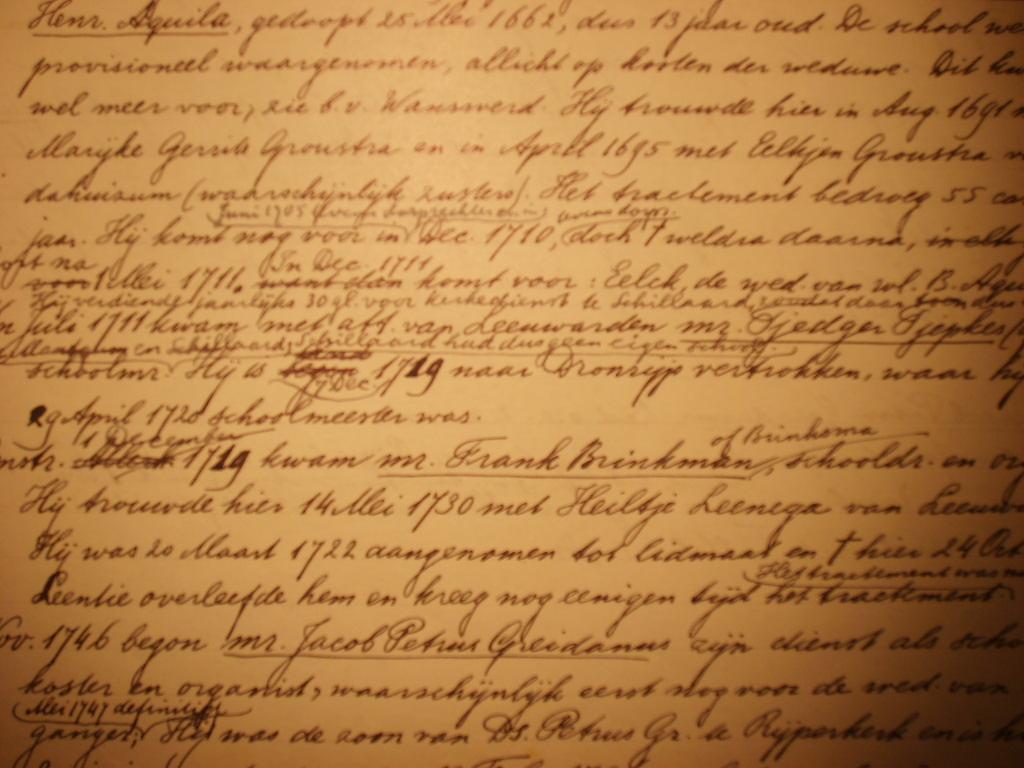 Henr. Aquila, gedoopt 25 Mei 1662, dus 13 jaar oud. De school we
provisioneel waargenomen, allicht op kosten der weduwe. Dit
wel meer voor, zie b.v. Wanswerd. Hij trouwde hier in Aug. 1691
Marijke Gerrits Groustra en in April 1695 met Eeltjen Groustra
dahuizum (waarschijnlijk zusters). Het tractement bedroeg 55 ca
Juni 1705
jaar. Hij komt nog voor in Dec. 1710, doch † weldra daarna, in elk
oft na In Dec. 1711
voor 1 Mei 1711, want dan komt voor: Eelck, de wed. van wl. B. Aqu
Hij verdiende jaarlijks 30 gl. voor kerkedienst te Schillaard,
n Juli 1711 kwam met att. van Leeuwarden mr. Tjedger Tjepkes
en Schillaard, Schillaard had dus geen eigen school
schoolmr. Hij is 17 Dec 1719 naar Dronrijp vertrokken, waar hij
29 April 1720 schoolmeester was.
1 December of Brinksma
mstr. 1719 kwam mr. Frank Brinkman, schooldr. en or
Hij trouwde hier 14 Mei 1730 met Heiltje Leenega van Leeuw
Hij was 20 Maart 1722 aangenomen tot lidmaat en † hier 24 Oct
Het tractement was
Leentie overleefde hem en kreeg nog eenigen tijd het tractement
Nov. 1746 begon mr. Jacob Petrus Greidanus zijn dienst als scho
koster en organist, waarschijnlijk eerst nog voor de wed. van
Mei 1747 definitief
ganger; Hij was de zoon van Ds. Petrus Gr. te Rijperkerk en is h